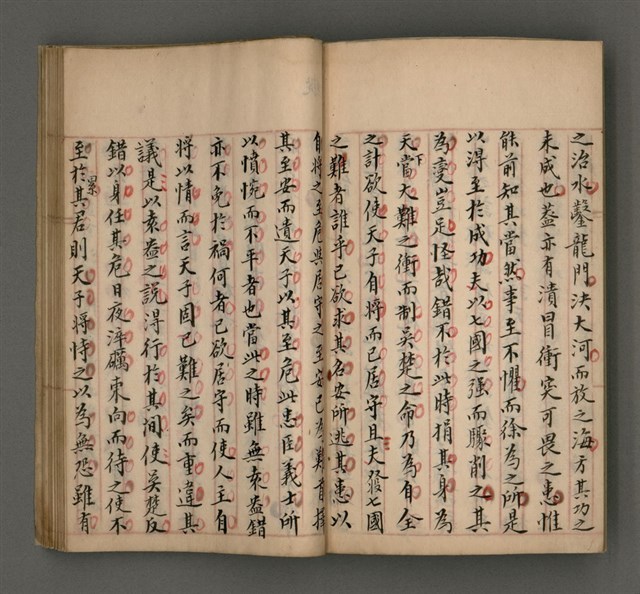 之治水鑿龍門決大河而放之海方其功之
未成也蓋亦有潰冒衝突可畏之患惟
能前知其當然事至不懼而徐為之所是
以得至於成功夫以七國之強而驟削之其
為變豈足怪哉錯不於此時捐其身為
天下當大難之衝而制吳楚之命乃為自全
之計欲使天子自將而己居守且夫發七國
之難者誰乎己欲求其名安所逃其患以
自將之至危與居守之至安己為難首擇
其至安而遺天子以其至危此忠臣義士所
以憤惋而不平者也當此之時雖無袁盎錯
亦不免於禍何者己欲居守而使人主自
將以情而言天子固已難之矣而重違其
議是以袁盎之說得行於其間使吳楚反
錯以身任其危日夜淬礪東向而待之使不
至於累其君則天子將恃之以為無恐雖有